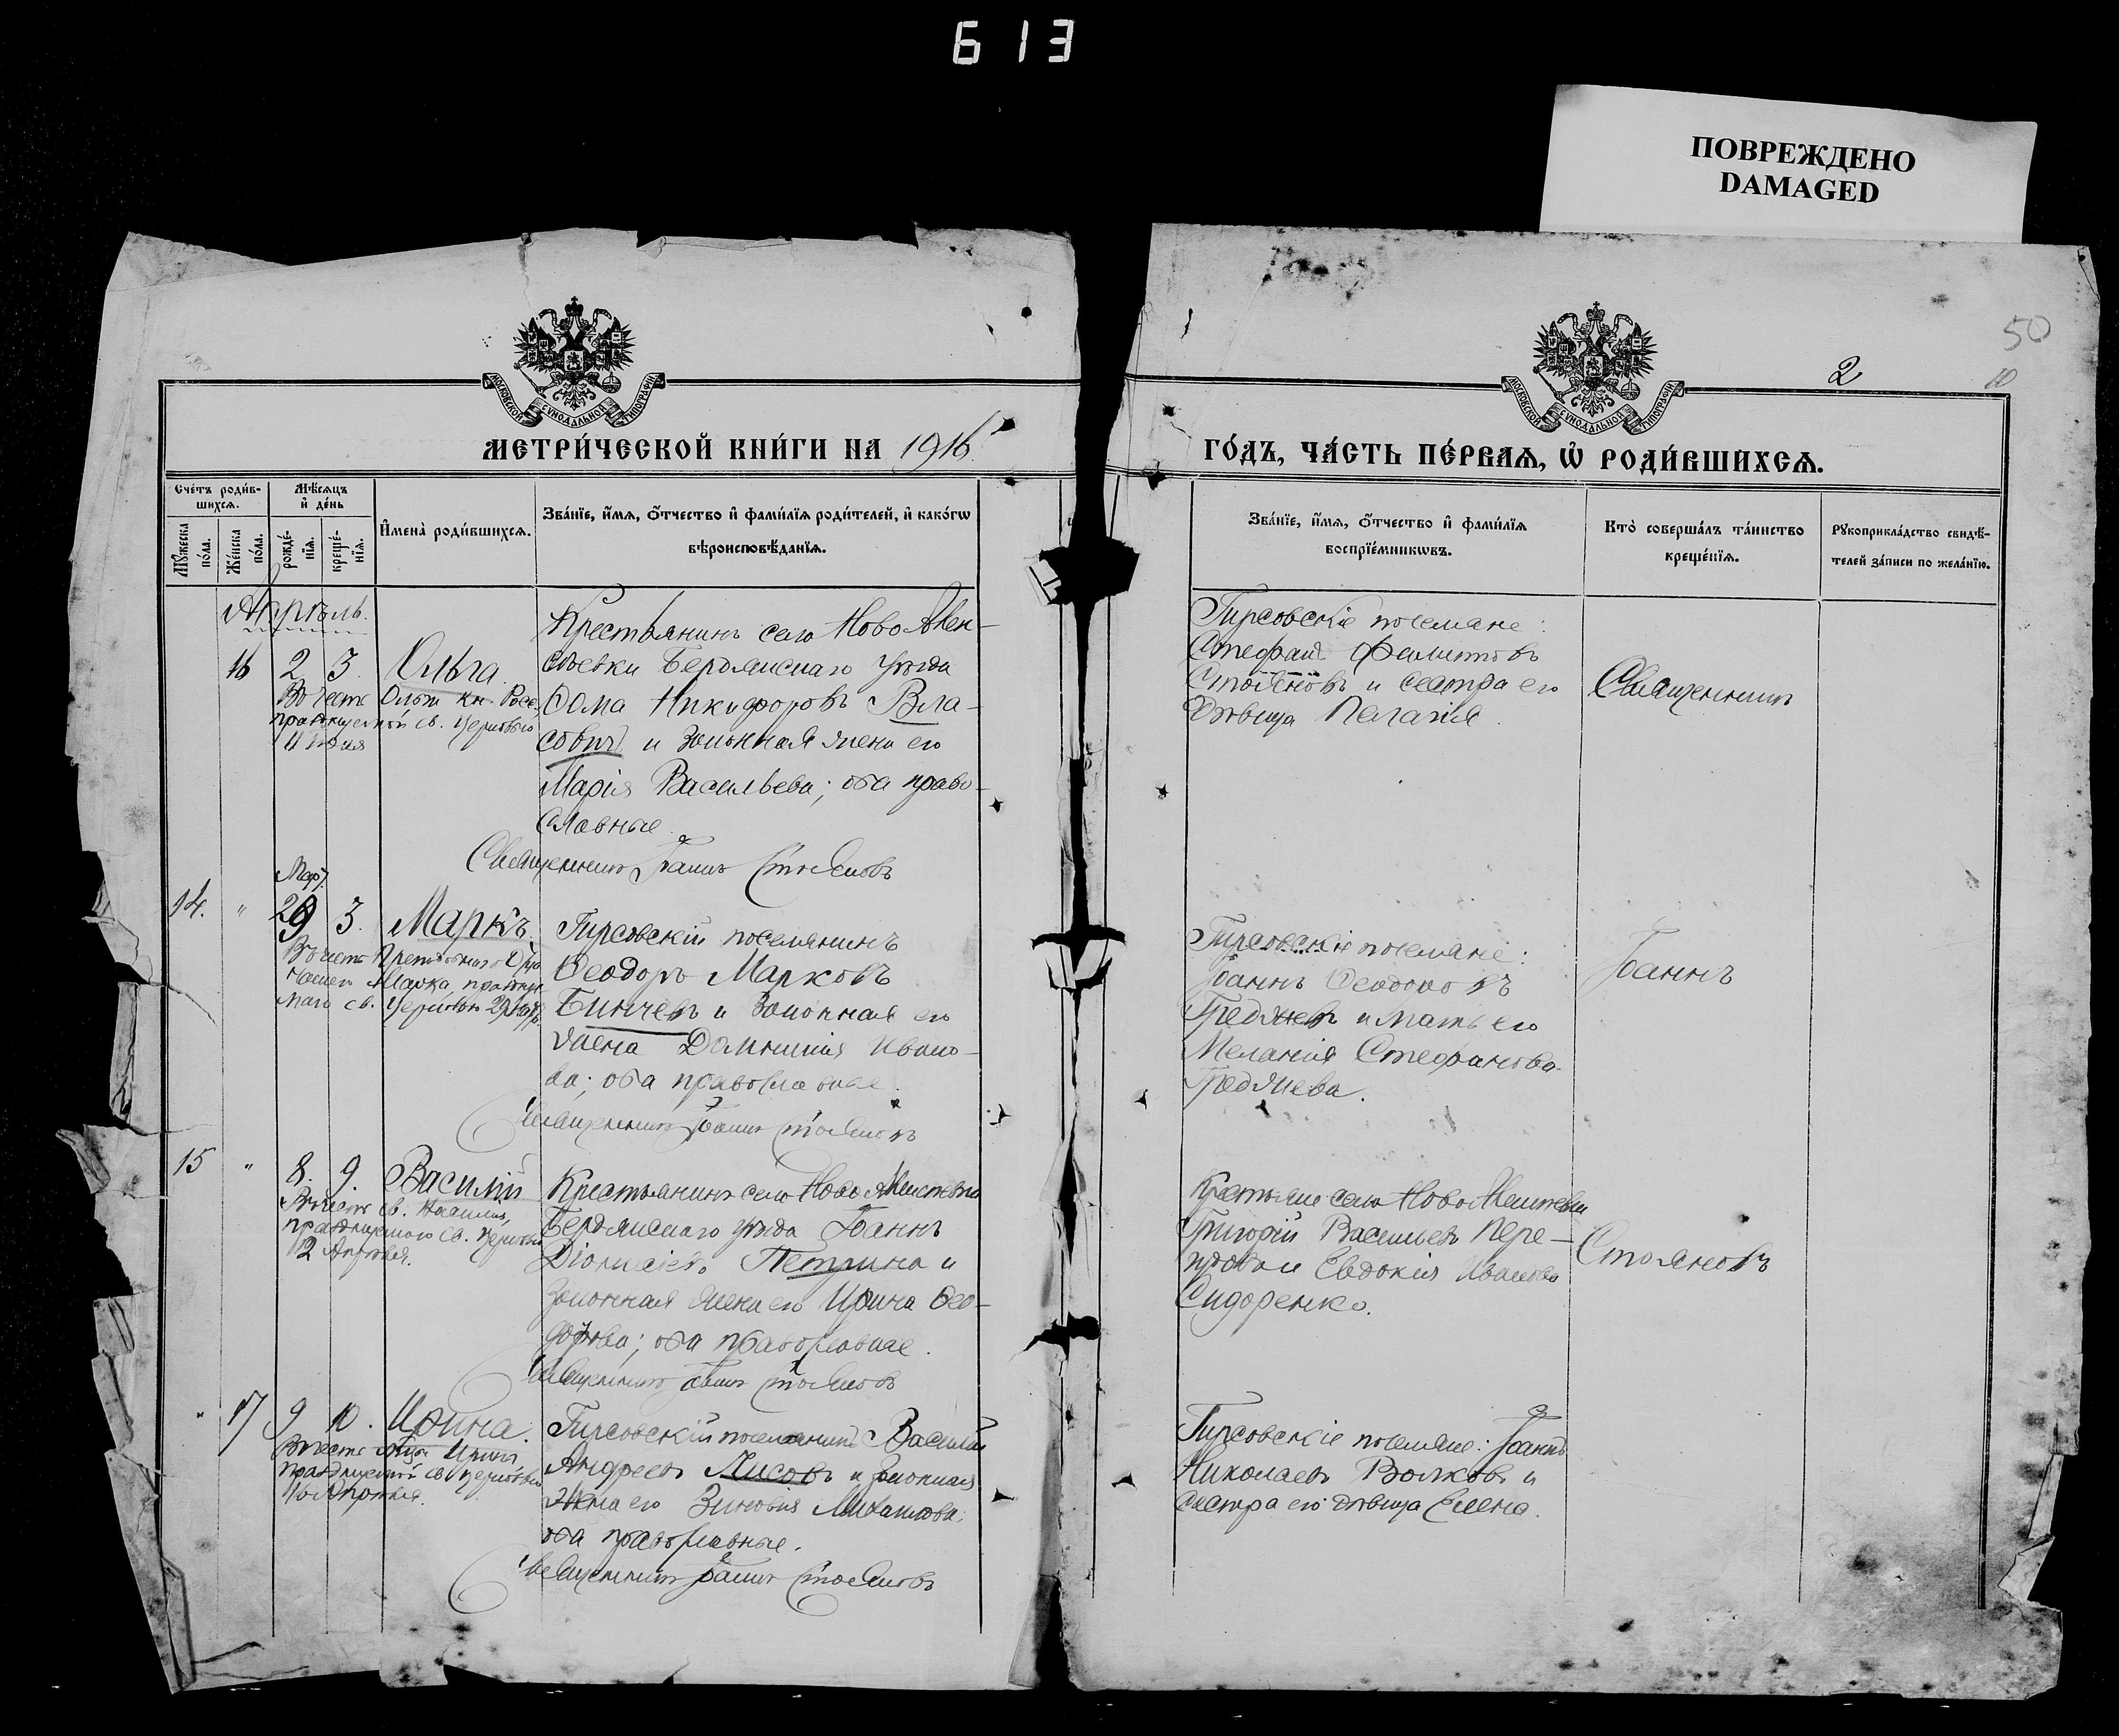 613
ПОВРЕЖДЕНО
DAMAGED
50
2
10
МОСКОВСКОЙ СѴНОДАЛЬНОЙ ТИПОГРАФІИ
МОСКОВСКОЙ СѴНОДАЛЬНОЙ ТИПОГРАФІИ
МЕТРИ́ЧЕСКОЙ КНИ́ГИ НА 1916
ГО́ДЪ, ЧА́СТЬ ПЕ́РВАЯ, Ѡ҆ РОДИ́ВШИХСЯ.
Сче́тъ роди́в-
шихся.
Мѣ́сяцъ
и҆ де́нь
Мꙋ́жеска по́ла.
Же́нска по́ла.
рожде́-
нїя.
креще́-
нїя.
И҆мена̀ роди́вшихся.
Зва́нїе, и҆́мя, ѻ҆́тчество и҆ фами́лїя роди́телей, и҆ како́гѡ
вѣроисповѣ́данїя.
Зва́нїе, и҆́мя, ѻ҆́тчество и҆ фами́лїя
воспрїе́мникѡвъ.
Кто̀ соверша́лъ та́инство
креще́нїя.
Рꙋкоприкла́дство свидѣ́-
телей за́писи по жела́нїю.
Апрѣль.
16 2 3 Ольга.
Въ честь Ольги кн. Росс.
празднуемой св. церковью
11 Июля
Крестьянинъ села Ново Алек-
сѣевки Бердянскаго уѣзда
Ѳома Никифоровъ Вла-
совъ и законная жена его
Марія Васильева; оба право-
славные.
Священникъ Іоаннъ Стояновъ
Гирсовскіе поселяне:
Стефанъ Филиповъ
Стояновъ и сестра его
дѣвица Пелагія.
Священникъ
Март.
14. " 29 3. Маркъ.
Въ честь
Марка, празднуе-
маго св. Церковью 29 Март.
Гирсовскій поселянинъ
Ѳеодоръ Марковъ
Бинчевъ и законная его
жена Домникія Ивано-
ва; оба православные.
Священникъ Іоаннъ Стояновъ
Гирсовскіе поселяне:
Іоаннъ Ѳеодоровъ
Гредневъ и мать его
Меланія Стефанова
Греднева.
Іоаннъ
15 " 8. 9. Василій
Въ честь св. Василія,
празднуемаго св. Церковью
12 Апрѣля.
Крестьянинъ села Ново Алексѣевки
Бердянскаго уѣзда Іоаннъ
Діонисіевъ Петрина и
законная жена его Ирина Ѳео-
дорова; оба православные.
Священникъ Іоаннъ Стояновъ
Крестьяне села Ново Алексѣевки
Григорій Васильевъ
и Евдокія Иванова
Сидоренко.
Стояновъ
" 17 9 10. Ирина.
Въ честь Муч. Ирины
празднуемой св. церковью
16 Апрѣля.
Гирсовскій поселянинъ Василій
Андреевъ Лисовъ и законная
жена его Зиновія Михайлова;
оба православные.
Священникъ Іоаннъ Стояновъ
Гирсовскіе поселяне: Іоаннъ
Николаевъ Волковъ и
сестра его дѣвица Елена.